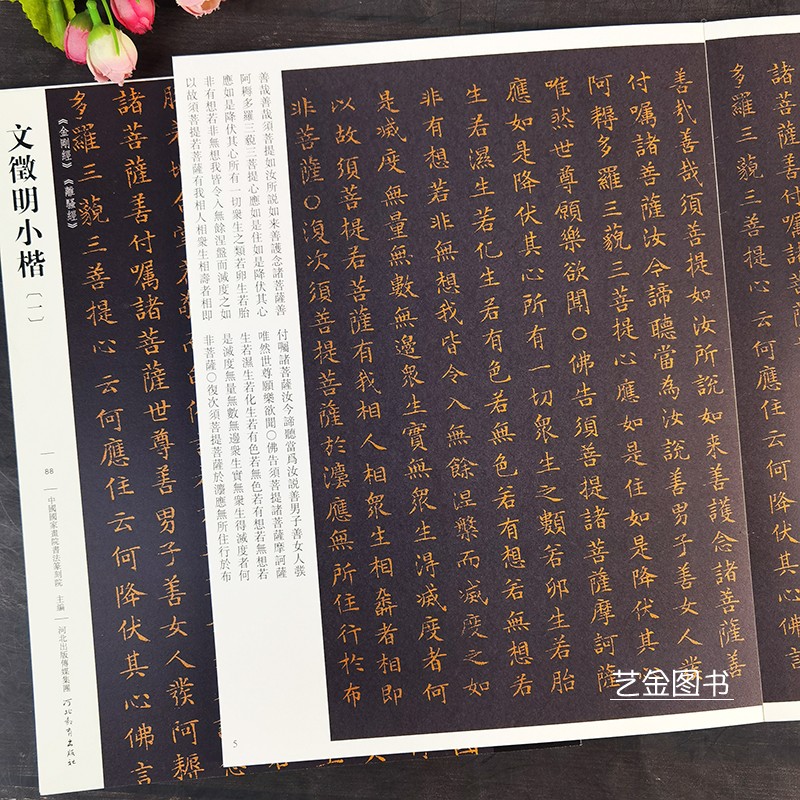 諸菩薩善付囑諸菩薩
多羅三藐三菩提心云何應住云何降伏其心佛言
善哉善哉須菩提如汝所說如来善護念諸菩薩善
付囑諸菩薩汝今諦聽當為汝說善男子善女人發
阿耨多羅三藐三菩提心應如是住如是降伏其心
唯然世尊願樂欲聞○佛告須菩提諸菩薩摩訶薩
應如是降伏其心所有一切衆生之類若卵生若胎
生若濕生若化生若有色若無色若有想若無想若
非有想若非無想我皆令入無餘涅槃而滅度之如
是滅度無量無數無邊衆生實無衆生得滅度者何
以故須菩提若菩薩有我相人相衆生相壽者相即
非菩薩○復次須菩提菩薩於灋應無所住行於布
善哉善哉須菩提如汝所説如来善護念諸菩薩善
付囑諸菩薩汝今諦聽當爲汝説善男子善女人發
阿耨多羅三藐三菩提心應如是住如是降伏其心
唯然世尊願樂欲聞○佛告須菩提諸菩薩摩訶薩
應如是降伏其心所有一切衆生之類若卵生若胎
生若濕生若化生若有色若無色若有想若無想若
非有想若非無想我皆令入無餘涅盤而滅度之如
是滅度無量無數無邊衆生實無衆生得滅度者何
以故須菩提若菩薩有我相人相衆生相壽者相即
非菩薩○復次須菩提菩薩於灋應無所住行於布
5
諸菩薩善付囑諸菩薩世尊善男子善女人發阿耨
多羅三藐三菩提心云何應住云何降伏其心佛言
《金剛經》《離騷經》
文徵明小楷〔一〕
88
中國國家畫院書法篆刻院 主編
河北出版傳媒集團
河北教育出版社
艺金图书